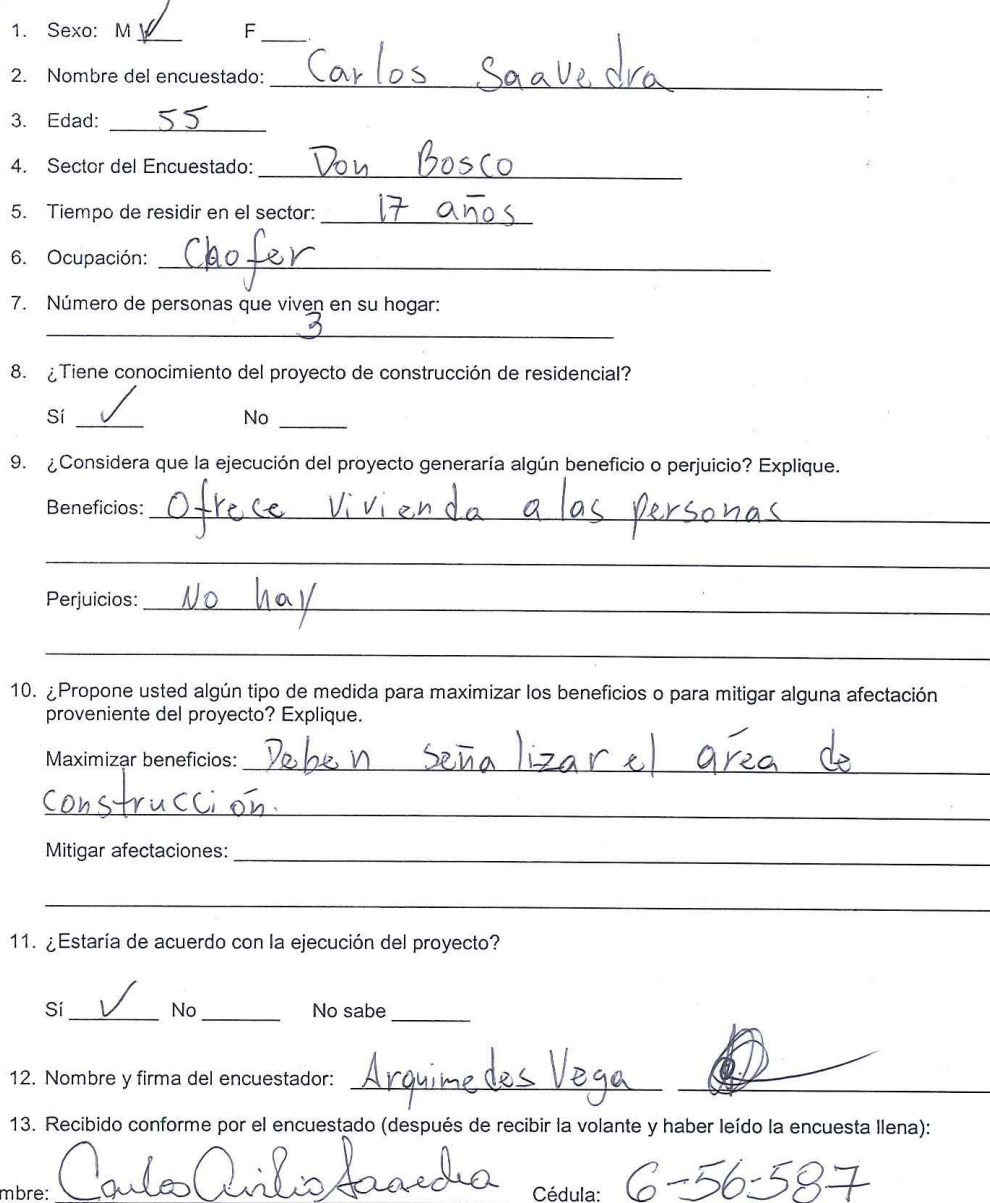 1. Sexo: M ✓ F ____
2. Nombre del encuestado: Carlos Saavedra
3. Edad: 55
4. Sector del Encuestado: Don Bosco
5. Tiempo de residir en el sector: 17 años
6. Ocupación: Chofer
7. Número de personas que viven en su hogar:
3
8. ¿Tiene conocimiento del proyecto de construcción de residencial?
Sí ✓ No ____
9. ¿Considera que la ejecución del proyecto generaría algún beneficio o perjuicio? Explique.
Beneficios: Ofrece Vivienda a las personas
Perjuicios: No hay
10. ¿Propone usted algún tipo de medida para maximizar los beneficios o para mitigar alguna afectación
proveniente del proyecto? Explique.
Maximizar beneficios: Deben señalizar el área de
construcción.
Mitigar afectaciones:
11. ¿Estaría de acuerdo con la ejecución del proyecto?
Sí ✓ No ____ No sabe ____
12. Nombre y firma del encuestador: Arquimedes Vega
13. Recibido conforme por el encuestado (después de recibir la volante y haber leído la encuesta llena):
mbre: Carlos Saavedra Cédula: 6-56-587